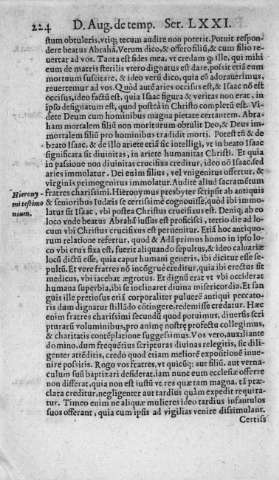 224 D. Aug. de temp. Ser. LXXI.
stum obtuleris, vtiq; tecum audire non poterit. Potuit respon-
dere beatus Abrahã, Verum dico, & offero filiũ, & cum filio re-
uertar ad vos. Tanta est fides mea, vt credam q̃ ille, qui mihi
eum de matris sterilis vtero dignatus est dare, possit etiã eum
mortuum suscitare, & ideo verũ dico, quia cũ adorauerimus,
reuertemur ad vos. Quòd autẽ aries occisus est, & Isaac nõ est
occisus, ideo factũ est, quia Isaac figura & veritas non erat, in
ipso designatum est, quod posteà in Christo completũ est. Vi-
dete Deum cum hominibus magna pietate certantem. Abra-
ham mortalem filiũ non moriturum obtulit Deo, & Deus im-
mortalem filiũ pro hominibus tradidit morti. Potest etiã & de
beato Isaac, & de illo ariete etiã sic intelligi, vt in beato Isaac
significata sit diuinitas, in ariete humanitas Christi. Et quia
in passione non diuinitas crucifixa creditur, ideo nõ Isaac sed
aries immolatur. Dei enim filius, vel vnigenitus offertur, &
virginis primogenitus immolatur. Audite aliud sacramẽtum
Hierony- Fratres charissimi. Hieronymus presbyter scripsit ab antiquis
mi testimo & senioribus Iudæis se certissimè cognouisse, quòd ibi immo-
nium. latus sit Isaac, vbi postea Christus crucifixus est. Deniq; ab eo
loco vnde beatus Abrahã iussus est proficisci, tertio die ad lo-
cum vbi Christus crucifixus est peruenitur. Etiã hoc antiquo-
rum relatione refertur, quòd & Adã primus homo in ipso lo-
co vbi crux fixa est, fuerit aliquando sepultus, & ideo Caluariæ
locũ dictũ esse, quia caput humani generis, ibi dicitur esse se-
pultũ. Et verè fratres nõ incõgruè creditur, quia ibi erectus sit
medicus, vbi iacebat ægrotus. Et dignũ erat vt vbi occiderat
humana superbia, ibi se inclinaret diuina misericordia. Et san
guis ille pretiosus etiã corporaliter puluerẽ antiqui peccato-
ris dum dignatur stillãdo cõtingere, redemisse credatur. Hæc
enim fratres charissimi secundũ quod potuimus, diuersis scri
pturarũ voluminibus, pro animę nostrę profectu collegimus,
& charitatis contẽplatione suggesimus. Vos verò, auxiliante
domino, dum frequẽtius scripturas diuinas relegitis, sic dili-
genter attẽditis, credo quòd etiam meliorẽ expositionẽ inue-
nire possitis. Rogo vos fratres, vt quicũq; aut filiũ, aut vernа-
culum suũ baptizari desiderat, iam nunc eum ecclesiæ offerre
non differat, quia non est iustũ vt res quæ tam magna, tã præ-
clara creditur, negligenter aut tardius quàm expedit requira-
tur. Timeo enim ne aliquæ mulieres ideo tardius infantulos
suos offerant, quia cum ipsis ad vigilias venire dissimulant.
Certiss